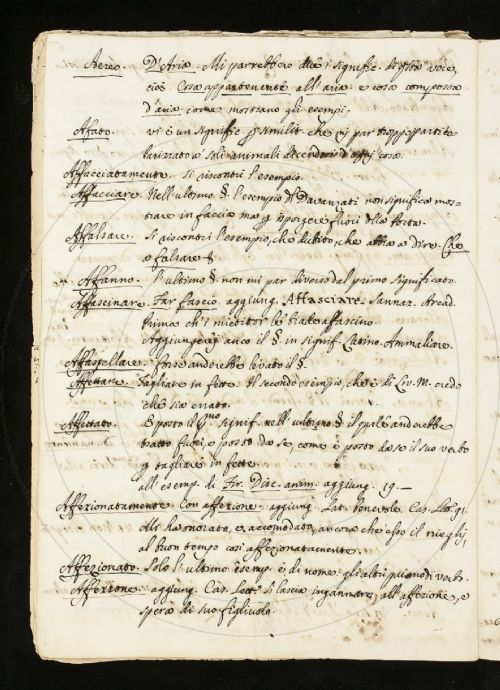 Aereo. D'Aria. Mi parrebbero due i signific. di questa voce,
cioè Cosa appartenente all'aria e cosa composta
d'aria come mostrano gli esempi.
Afato. vi è un signific. similit. che par troppo
a' soli animali dicendosi d'ogni cosa.
Affacciatamente. Si riscontri l'esempio.
Affacciare. Nell'ultimo §. l'esempio del Davanzati non significa mos-
trare in faccia ma sporgere fuori della porta.
Affalsare. Si riscontri l'esempio, che dubito, che abbia a dire. Che
o falsare §
Affanno. l'ultimo § non mi par diverso dal primo significato.
Affascinare. Far fascio aggiung. Affasciare. Sannaz. Arcad.
Prima ch'i mietitor le biade affascino.
Aggiungerei anco il §. in signif. Latino. Ammaliare.
Affastellare. Forse anderebbe levato il §.
Affettare. Tagliare in fette. Il secondo esempio, che è di Liv. M. credo
che sia errato.
Affettato. È posto il pmo signif. nell'ultimo § il quale anderebbe
tratto fuori, e posto da se, come è posto da se il suo verbo
p tagliare in fette.
all'esemp. di Fir. Disc. anim. aggiung. 19.—
Affezionatamente. Con affezione. aggiung. Lat. benevole. Car. Lett. 91.
Mi ha onorato, e accomodato, ancora che elso il meglio,
al buon tempo così affezionatamente.
Affezionato. Solo l'ultimo esemp. è di nome: gli altri paiono di verb.
Affezione. aggiung. Car. Lett. Si lascia ingannare, all'affezione, e
spera di suo figliuolo.